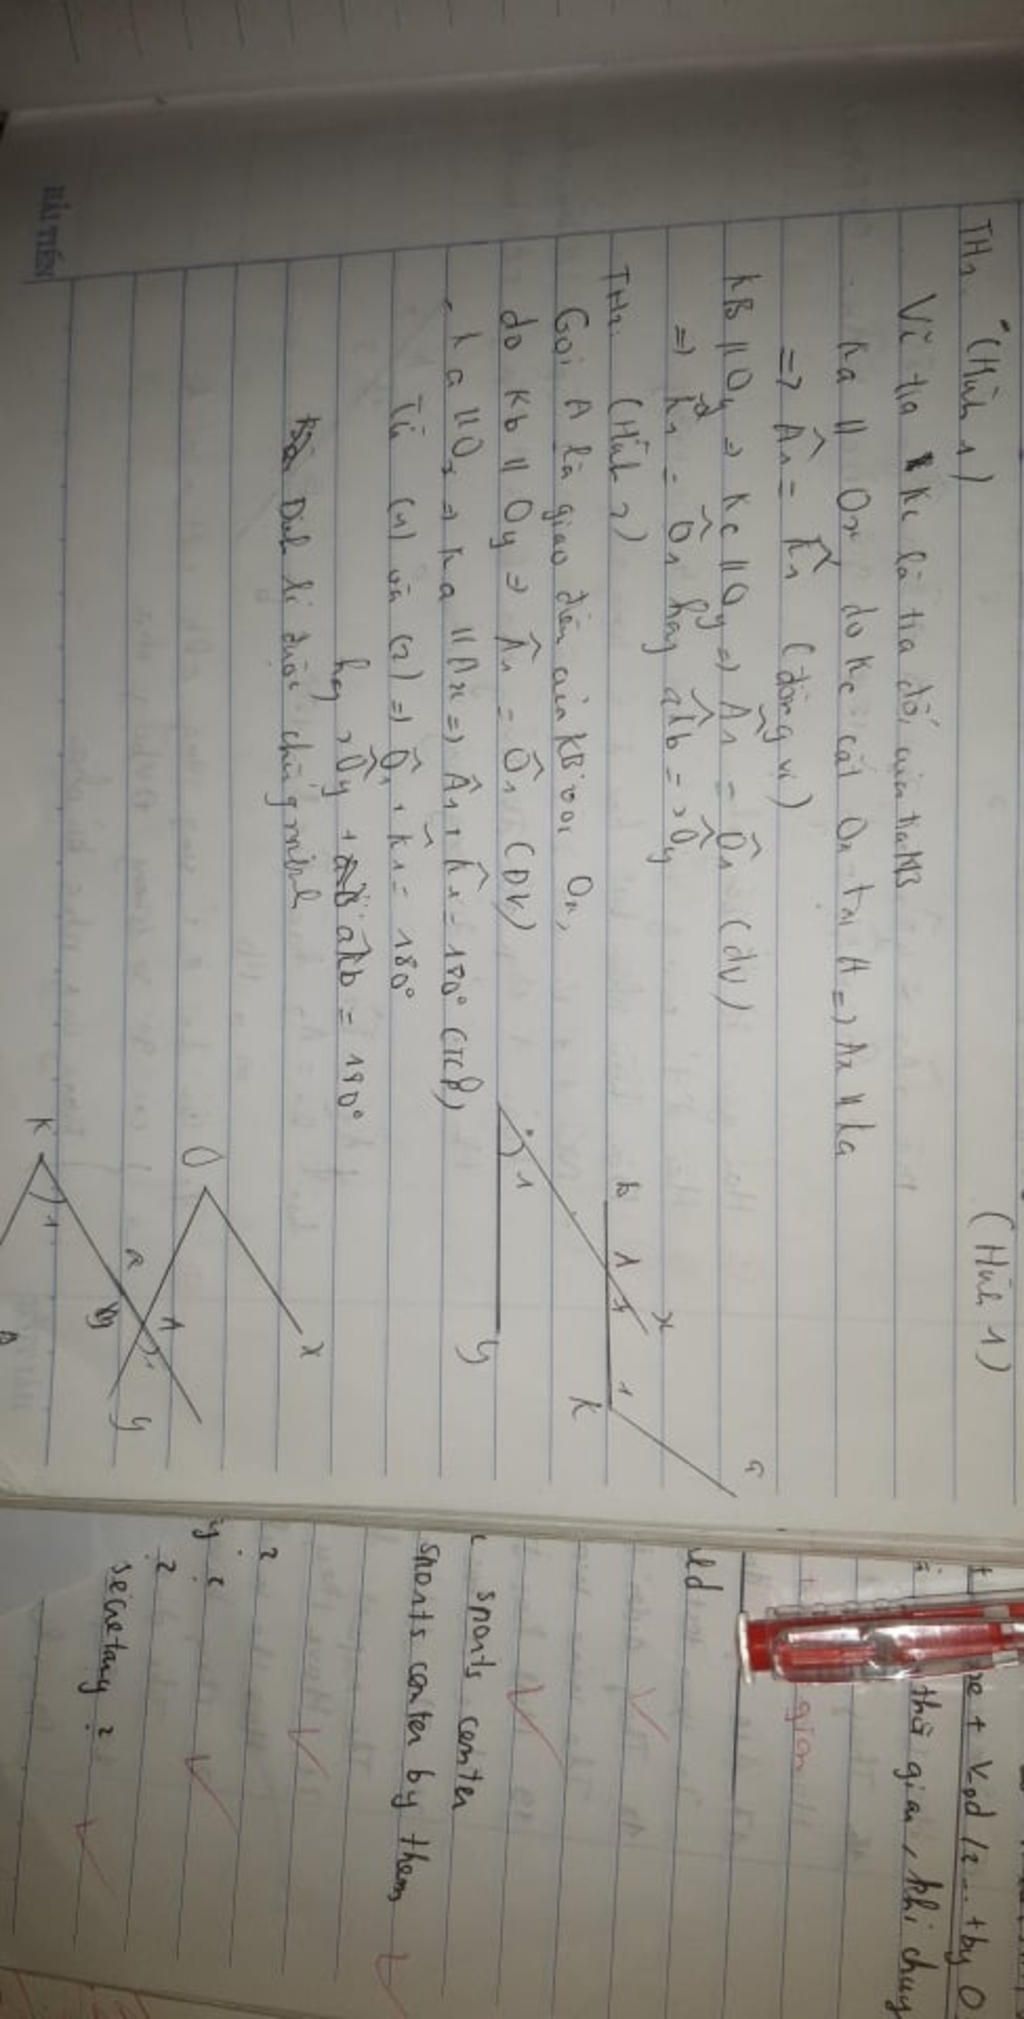 TH1 (Hình 1)
(Hình 1)
Vẽ tia Kc là tia đối của tia KB
Ka // Ox, do Kc cắt Ox tại A => Ax // Ka
=> Â1 = K̂1 (đồng vị)
KB // Oy => Kc // Oy => Â1 = Ô1 (dv)
=> K̂1 = Ô1 hay aK̂b = xÔy
TH2 (Hình 2)
Gọi A là giao điểm của KB với Ox,
do Kb // Oy => Â1 = Ô1 (DV)
Ka // Ox => Ka // Ax => Â1 + K̂1 = 180° (TCP)
Từ (1) và (2) => Ô1 + K̂1 = 180°
hay xÔy + aK̂b = 180°
Định lí được chứng minh
b
1
1
K
x
a
1
y
O
x
K
1
a
A
1
y
HẢI TIẾN
+ Vpd /2 ... + by O
thời gian, khi chuy
gian
sports center
sports center by them
?
y ?
?
secretary ?